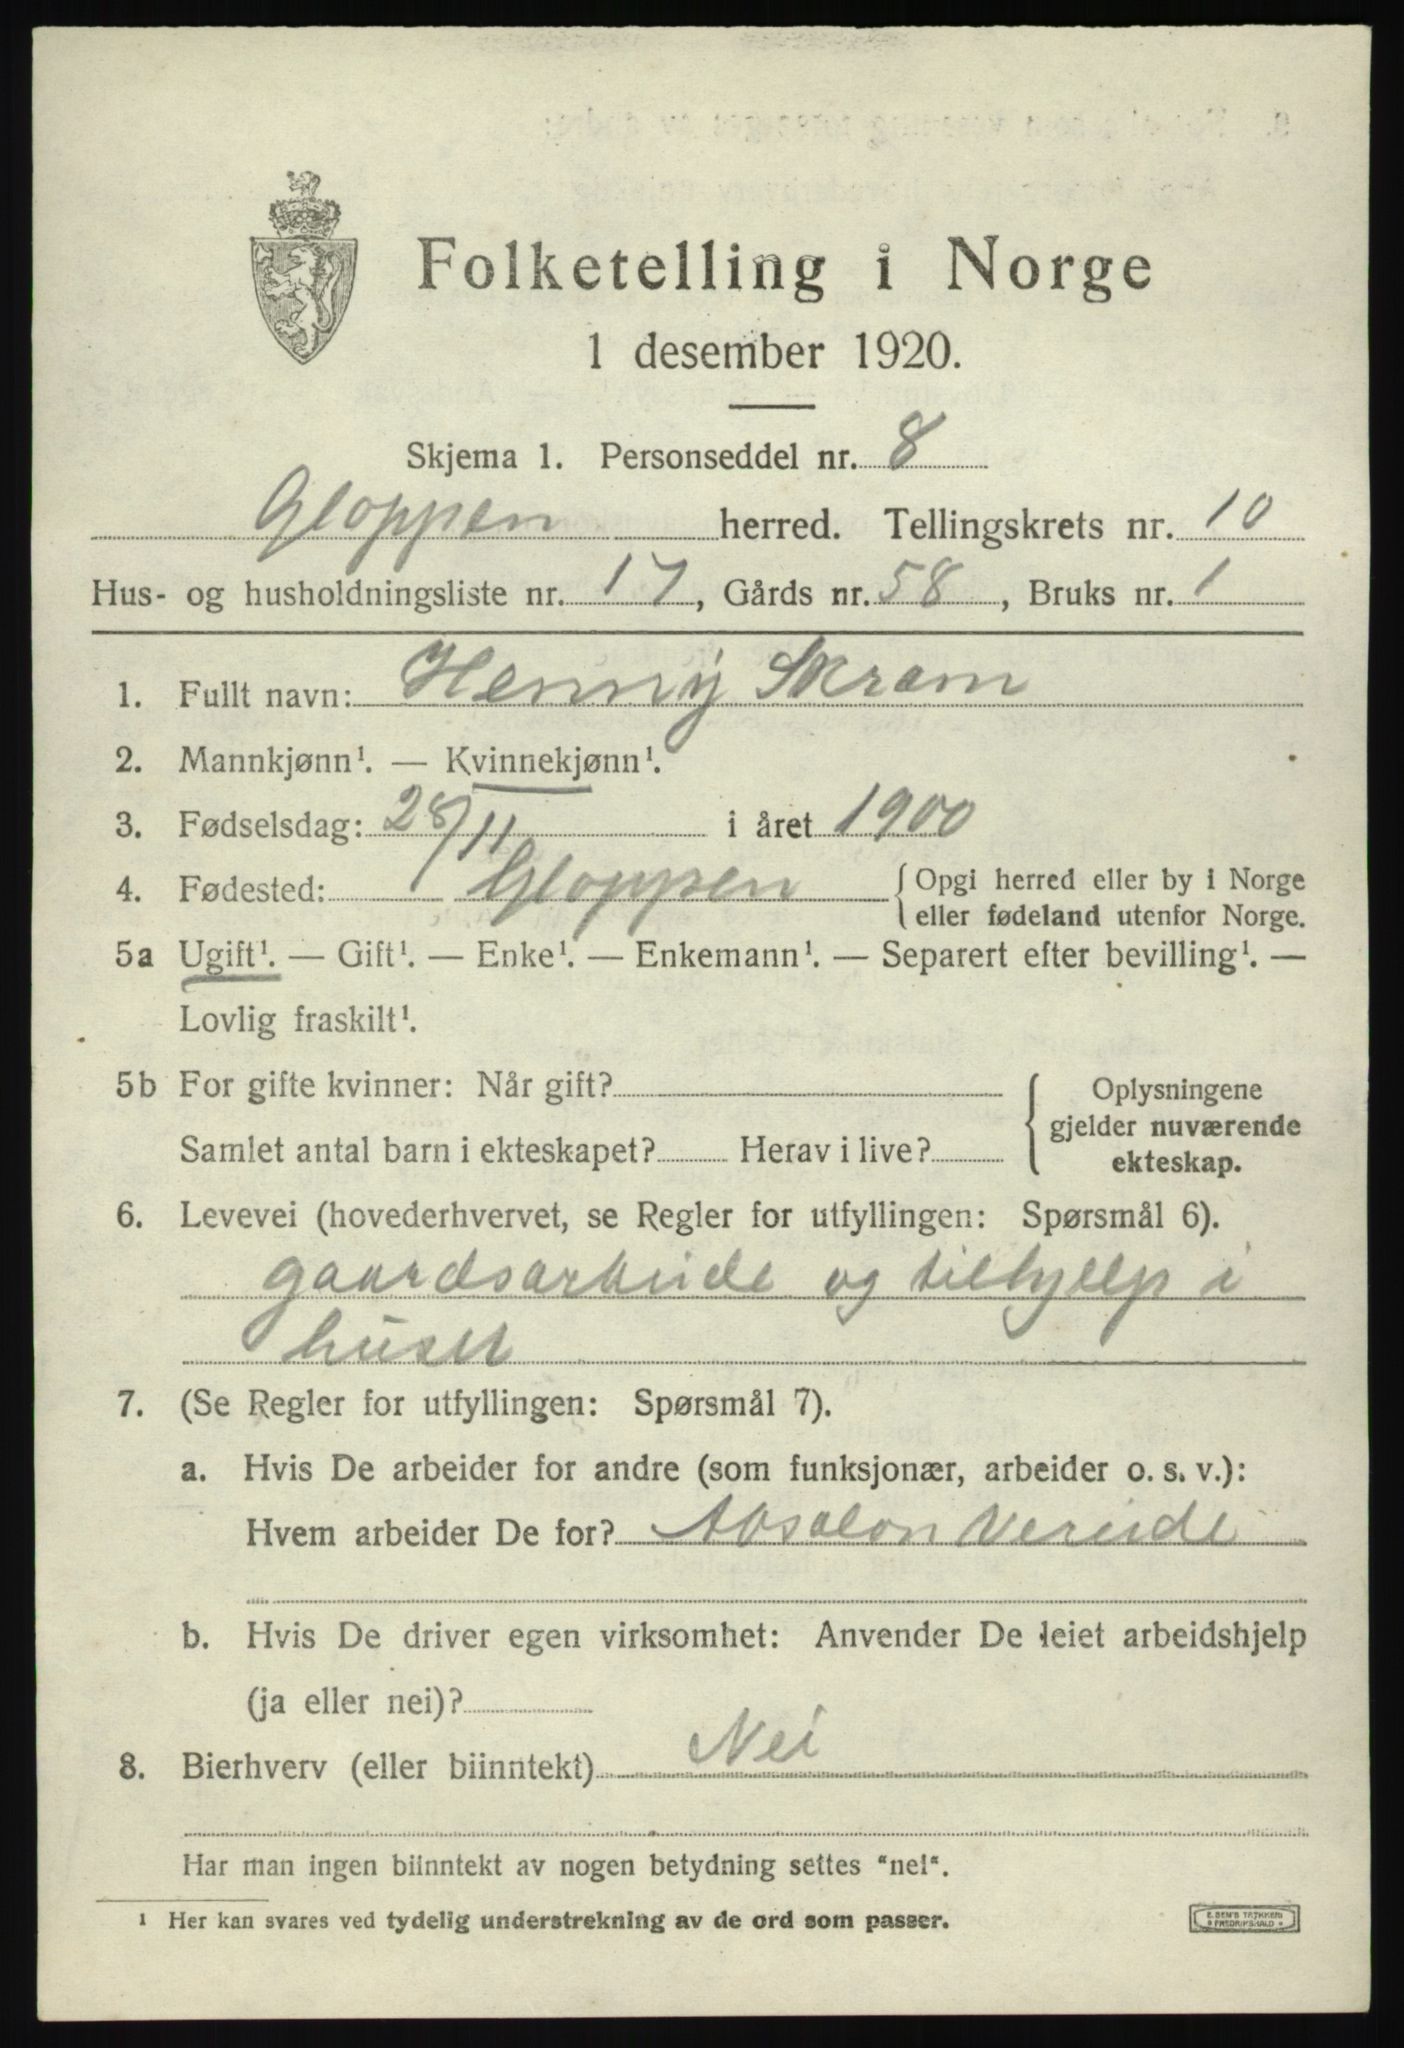 Folketelling i Norge
1 desember 1920.
Skjema 1. Personseddel nr. 8
Gloppen herred. Tellingskrets nr. 10
Hus- og husholdningsliste nr. 17, Gårds nr. 58, Bruks nr. 1
1. Fullt navn: Henny Skram
2. Mannkjønn¹. — Kvinnekjønn¹.
3. Fødselsdag: 28/11 i året 1900
4. Fødested: Gloppen { Opgi herred eller by i Norge
eller fødeland utenfor Norge.
5a Ugift¹. — Gift¹. — Enke¹. — Enkemann¹. — Separert efter bevilling¹. —
Lovlig fraskilt¹.
5b For gifte kvinner: Når gift?
Samlet antal barn i ekteskapet? Herav i live?
Oplysningene
gjelder nuværende
ekteskap.
6. Levevei (hovederhvervet, se Regler for utfyllingen: Spørsmål 6).
gaardsarbeide og tilhjelp i
huset
7. (Se Regler for utfyllingen: Spørsmål 7).
a. Hvis De arbeider for andre (som funksjonær, arbeider o. s. v.):
Hvem arbeider De for? Absalon Vereide
b. Hvis De driver egen virksomhet: Anvender De leiet arbeidshjelp
(ja eller nei)?
8. Bierhverv (eller biinntekt) Nei
Har man ingen biinntekt av nogen betydning settes "nei".
¹ Her kan svares ved tydelig understrekning av de ord som passer.
E. SEM'S TRYKKERI
FREDRIKSHALD